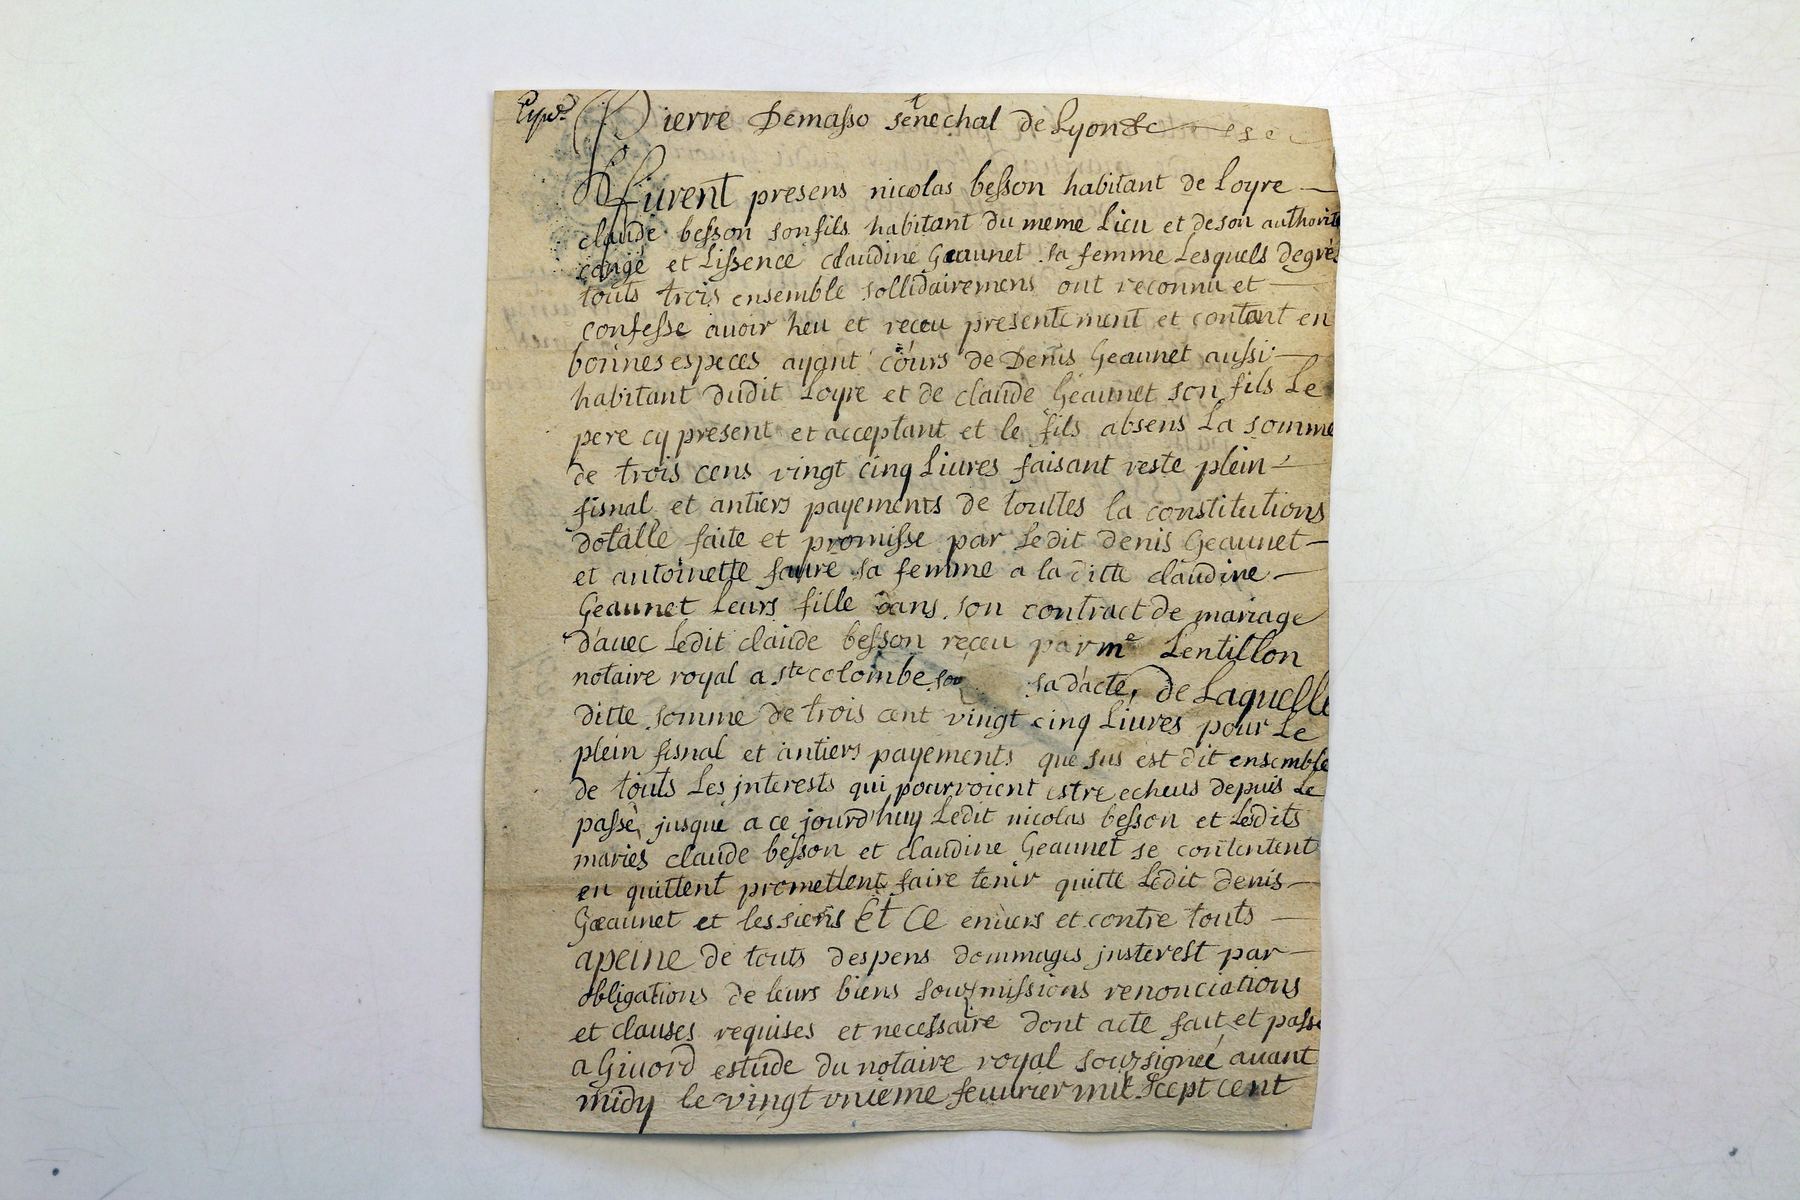 Pierre Demasso senechal de Lyon &c
Furent presens nicolas besson habitant de Loyre
claude besson son fils habitant du meme Lieu et de son authorité
congé et Lissence claudine Geaunet sa femme Lesquels de gres
touts trois ensemble sollidairemens ont reconnu et
confesse auoir heu et receu presentement et contant en
bonnes especes ayant cours de Denis Geaunet aussi
habitant dudit Loyre et de claude Geaunet son fils Le
pere cy present et acceptant et le fils absens La somme
de trois cens vingt cinq Liures faisant reste plein
fisnal et antiers payements de touttes la constitutions
dotalle faite et promisse par Ledit denis Geaunet
et antoinette faure sa femme a la ditte claudine
Geaunet Leurs fille dans son contract de mariage
d'auec Ledit claude besson receu par me Lentillon
notaire royal a ste colombe sou sa dacte, de Laquelle
ditte somme de trois cent vingt cinq Liures pour Le
plein fisnal et antiers payements que sus est dit ensemble
de touts Les jnterests qui pourroient estre echeus depuis Le
passé jusque a ce jourd'huy Ledit nicolas besson et Lesdits
mariés claude besson et claudine Geaunet se contentent
en quittent promettent faire tenir quitte Ledit denis
Geaunet et les siens Et Ce enuers et contre touts
apeine de touts despens dommages jnsterest par
obligations de leurs biens souzmissions renonciations
et clauses requises et necessaire dont acte fait et passé
a Giuord estude du notaire royal souzsigneé auant
midy le vingt vnieme feuurier mil scept cent